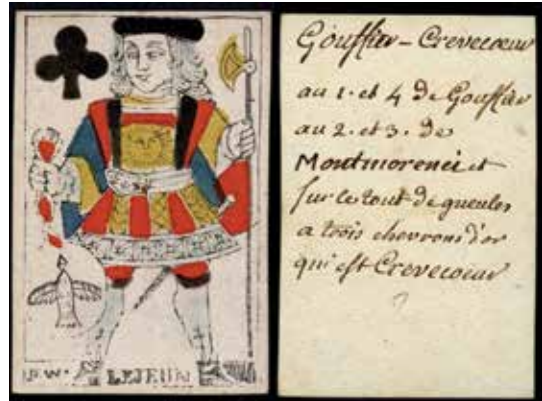 P.W. LEJEUN
Gouffier - Crevecoeur
au 1. et 4 de Gouffier
au 2. et 3. de
Montmorenci et
sur le tout de gueules
a trois chevrons d'or
qui est Crevecoeur